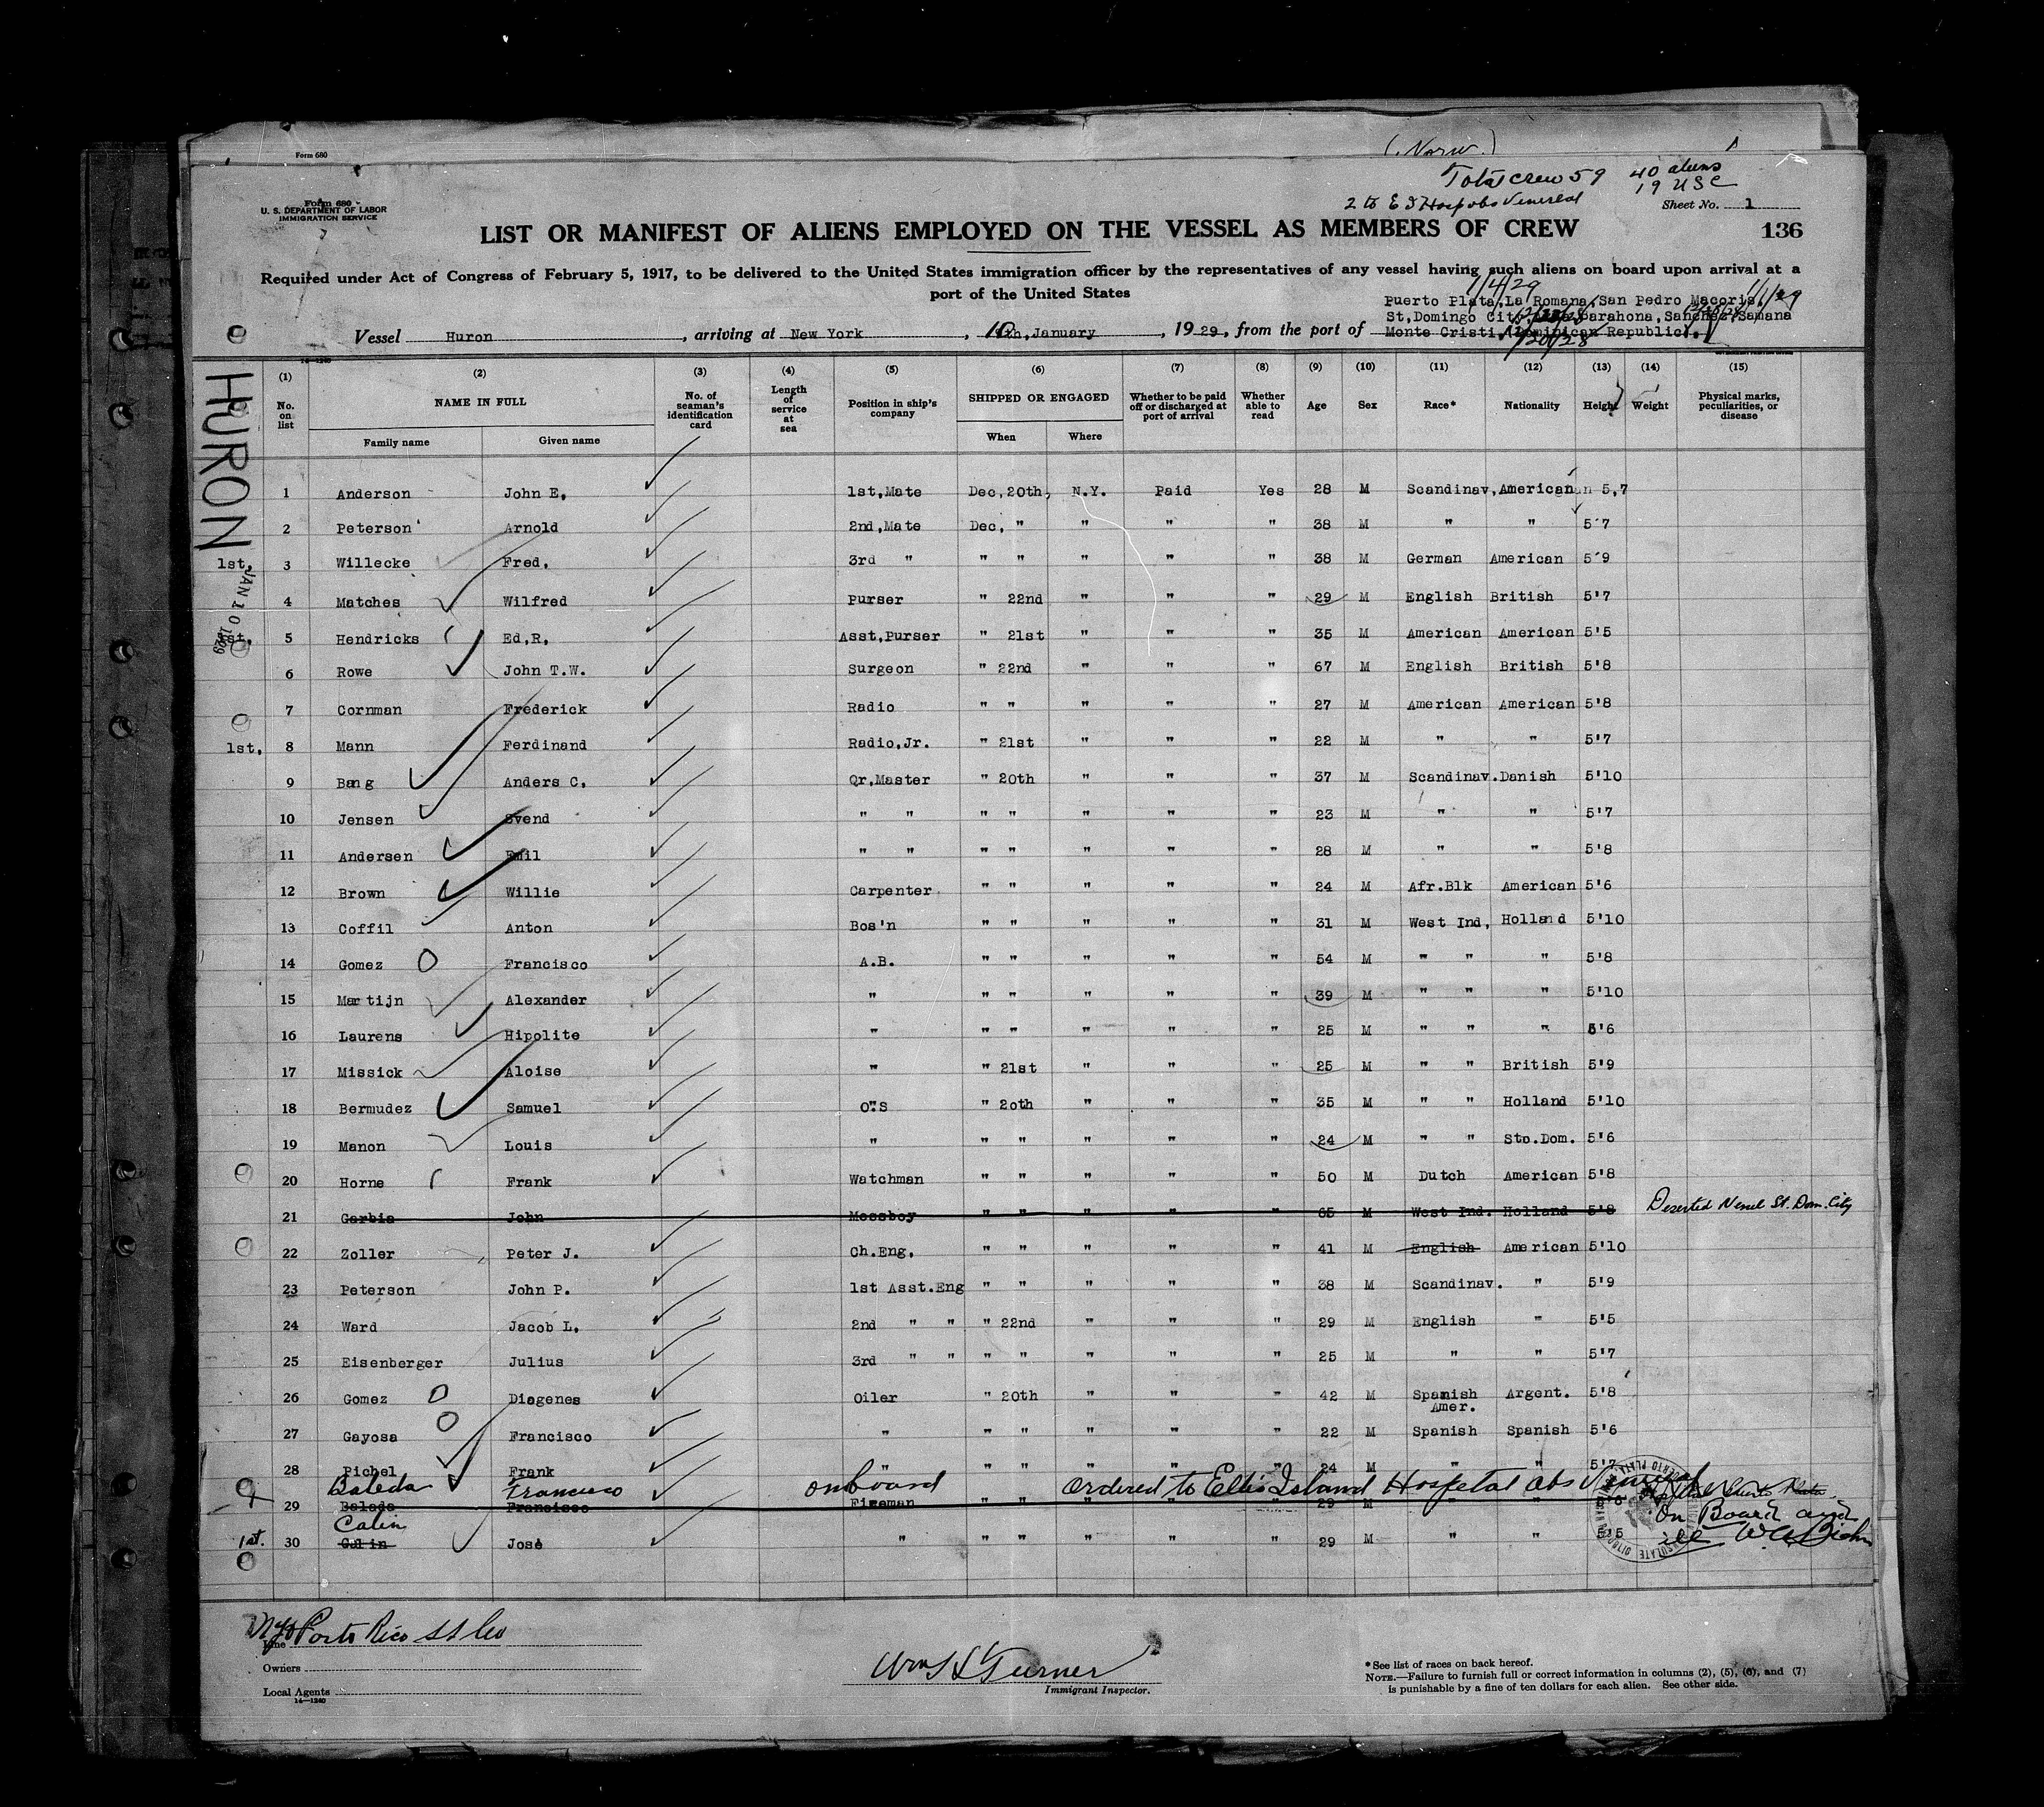 Form 680
(Norw.)
Total crew 59 40 aliens
19 USC
2 to E I Hosp obs Venereal
Form 680
U. S. DEPARTMENT OF LABOR
IMMIGRATION SERVICE
Sheet No. 1
LIST OR MANIFEST OF ALIENS EMPLOYED ON THE VESSEL AS MEMBERS OF CREW
136
Required under Act of Congress of February 5, 1917, to be delivered to the United States immigration officer by the representatives of any vessel having such aliens on board upon arrival at a
port of the United States
1/4/29 1/1/29
Puerto Plata,La Romana,San Pedro Macoris,
St,Domingo City, Barahona,Sanchez,Samana
Vessel Huron, arriving at New York, 10th,January, 1929, from the port of Monte Cristi, Dominican Republic.
14-1240
HURON
JAN 10 1929
(1) (2) (3) (4) (5) (6) (7) (8) (9) (10) (11) (12) (13) (14) (15)
No. on list NAME IN FULL Family name Given name No. of seaman's identification card Length of service at sea Position in ship's company SHIPPED OR ENGAGED When Where Whether to be paid off or discharged at port of arrival Whether able to read Age Sex Race* Nationality Height Weight Physical marks, peculiarities, or disease
1 Anderson John E, 1st,Mate Dec,20th, N.Y. Paid Yes 28 M Scandinav,American 5,7
2 Peterson Arnold 2nd,Mate Dec, " " " " 38 M " " 5'7
1st, 3 Willecke Fred, 3rd " " " " " " 38 M German American 5'9
4 Matches Wilfred Purser " 22nd " " " 29 M English British 5'7
1st, 5 Hendricks Ed,R, Asst,Purser " 21st " " " 35 M American American 5'5
6 Rowe John T.W. Surgeon " 22nd " " " 67 M English British 5'8
7 Cornman Frederick Radio " " " " " 27 M American American 5'8
1st, 8 Mann Ferdinand Radio,Jr. " 21st " " " 22 M " " 5'7
9 Bang Anders C, Qr,Master " 20th " " " 37 M Scandinav.Danish 5'10
10 Jensen Svend " " " " " " " 23 M " " 5'7
11 Andersen Emil " " " " " " " 28 M " " 5'8
12 Brown Willie Carpenter " " " " " 24 M Afr.Blk American 5'6
13 Coffil Anton Bos'n " " " " " 31 M West Ind, Holland 5'10
14 Gomez Francisco A.B. " " " " " 54 M " " " 5'8
15 Martijn Alexander " " " " " " 39 M " " " 5'10
16 Laurens Hipolite " " " " " " 25 M " " " 5'6
17 Missick Aloise " " 21st " " " 25 M " " British 5'9
18 Bermudez Samuel O.S " 2oth " " " 35 M " " Holland 5'10
19 Manon Louis " " " " " " 24 M " " Sto.Dom. 5'6
20 Horne Frank Watchman " " " " " 50 M Dutch American 5'8
21 Garbis John Messboy " " " " " 65 M West Ind. Holland 5'8 Deserted Vessel St. Dom. City
22 Zoller Peter J. Ch.Eng, " " " " " 41 M English American 5'10
23 Peterson John P. 1st Asst.Eng " " " " " 38 M Scandinav. " 5'9
24 Ward Jacob L, 2nd " " " 22nd " " " 29 M English " 5'5
25 Eisenberger Julius 3rd " " " " " " " 25 M " " 5'7
26 Gomez Diogenes Oiler " 20th " " " 42 M Spanish Amer. Argent. 5'8
27 Gayosa Francisco " " " " " " 22 M Spanish Spanish 5'6
28 Pichel Frank " " " " " " 24 M " " 5'7
Baleda Francisco on board ordered to Ellis Island Hospital obs Venereal
29 Belado Francisco Fireman " " " " " 29 M " " 5'6 Puerto Plata
On Board and
ill
Calin
1st. 30 Gelin José " " " " " " 29 M " " 5'5
Line NY & Porto Rico SS Co
Owners
Local Agents
14-1240
Wm S L Turner
Immigrant Inspector.
*See list of races on back hereof.
NOTE.—Failure to furnish full or correct information in columns (2), (5), (6), and (7)
is punishable by a fine of ten dollars for each alien. See other side.